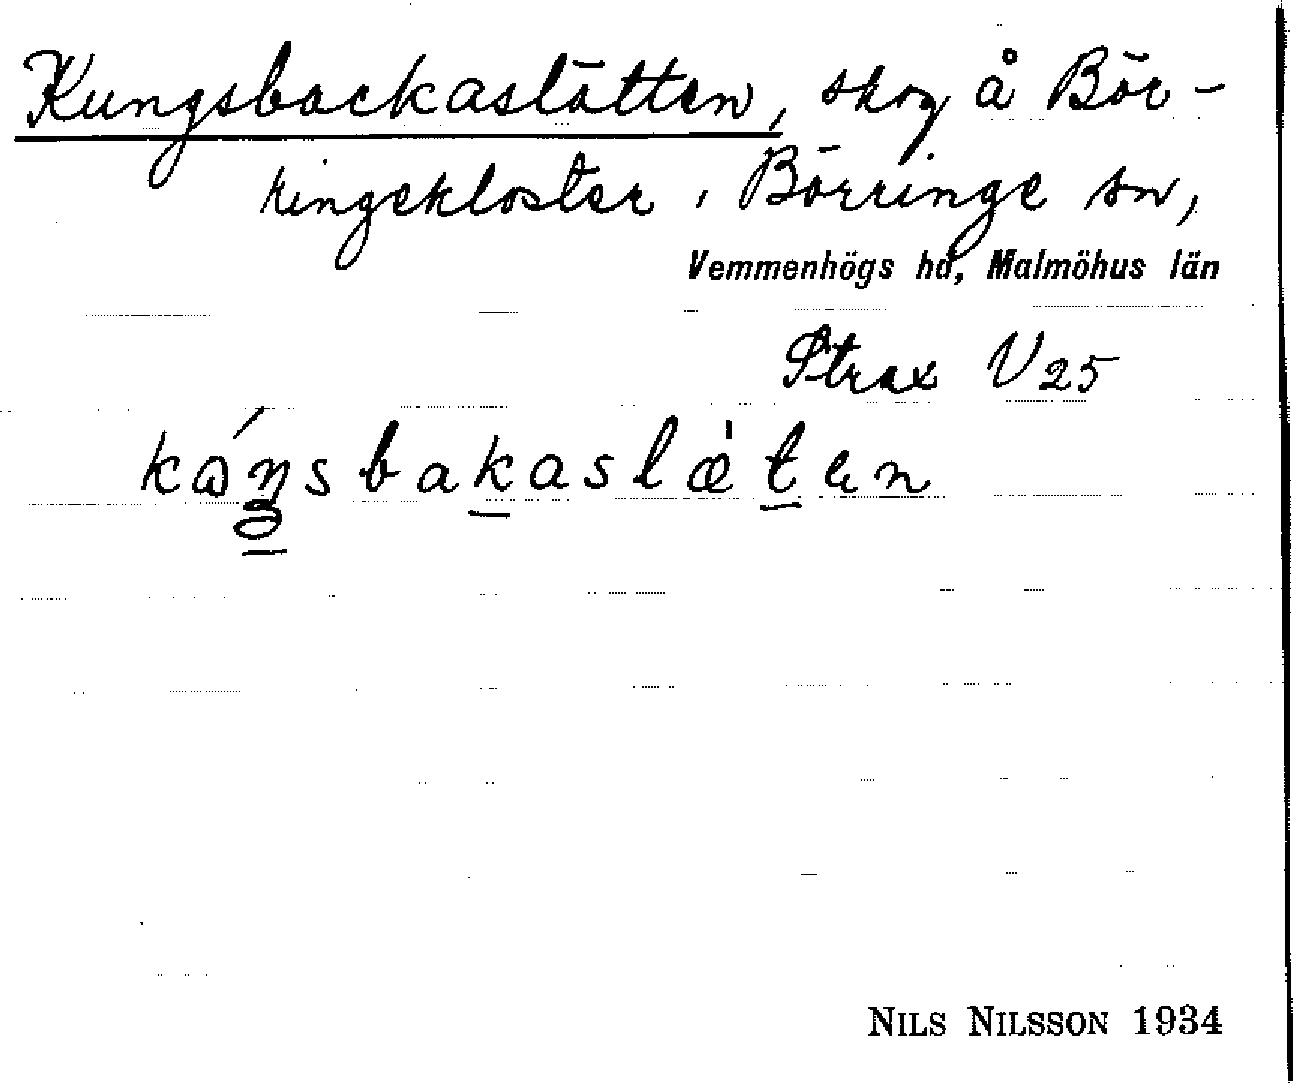 Kungsbackaslätten, skog å Bör-
ringekloster i Börringe sn,
Vemmenhögs hd, Malmöhus län
Strax V 25
NILS NILSSON 1934